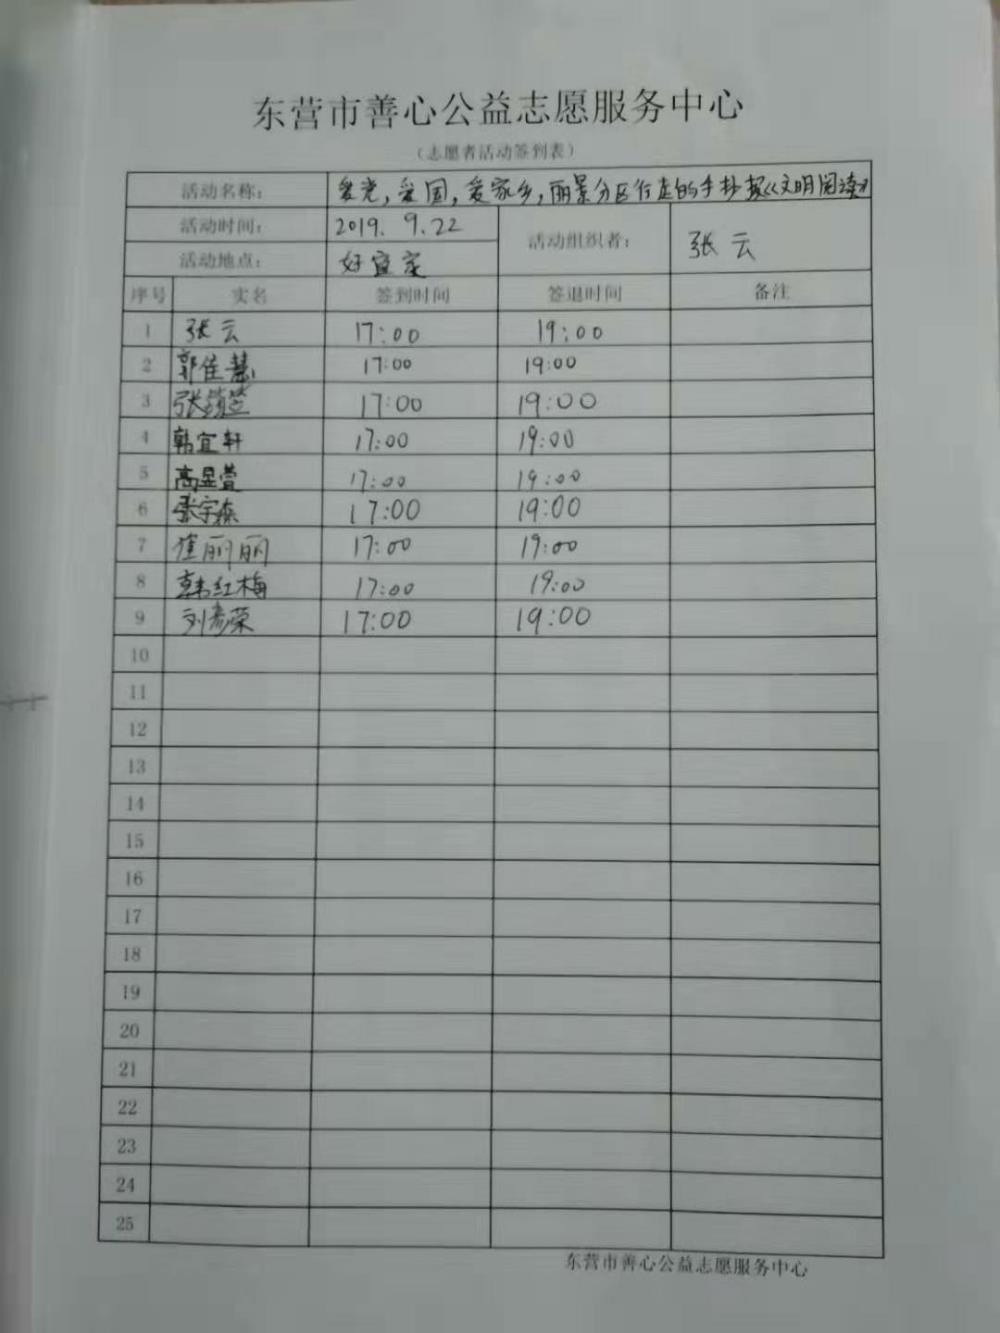 东营市善心公益志愿服务中心
（志愿者活动签到表）
活动名称： 爱党，爱国，爱家乡，丽景分区行走的手抄报《文明阅读》
活动时间： 2019. 9.22 活动组织者： 张云
活动地点： 好宜家
序号 实名 签到时间 签退时间 备注
1 张云 17:00 19:00
2 郭佳慧 17:00 19:00
3 张 17:00 19:00
4 韩宜轩 17:00 19:00
5 高昱萱 17:00 19:00
6 张宇森 17:00 19:00
7 崔丽丽 17:00 19:00
8 韩红梅 17:00 19:00
9 刘荣 17:00 19:00
10
11
12
13
14
15
16
17
18
19
20
21
22
23
24
25
东营市善心公益志愿服务中心